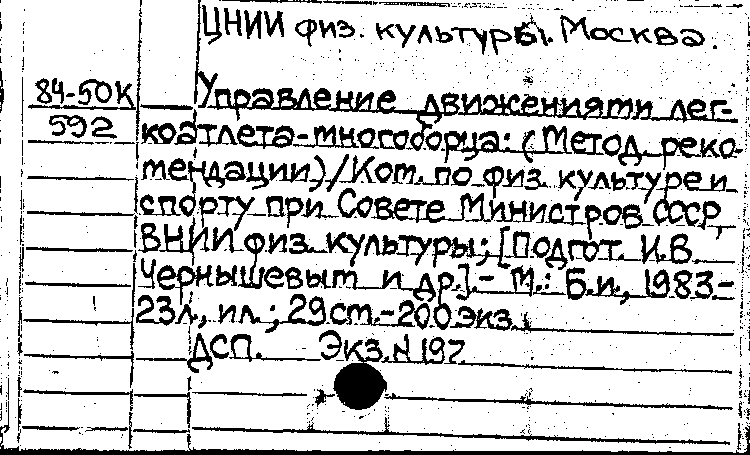 ЦНИИ физ. культуры. Москва.
84-50К Управление движениями лег-
592 коатлета-многоборца: (Метод. реко-
мендации)/Ком. по физ. культуре и
спорту при Совете Министров СССР,
ВНИИ физ. культуры; [Подгот. И.В.
Чернышевым и др.].- М.: Б.и., 1983.-
23л., ил.; 29см.-200экз.
ДСП. Экз.N 197